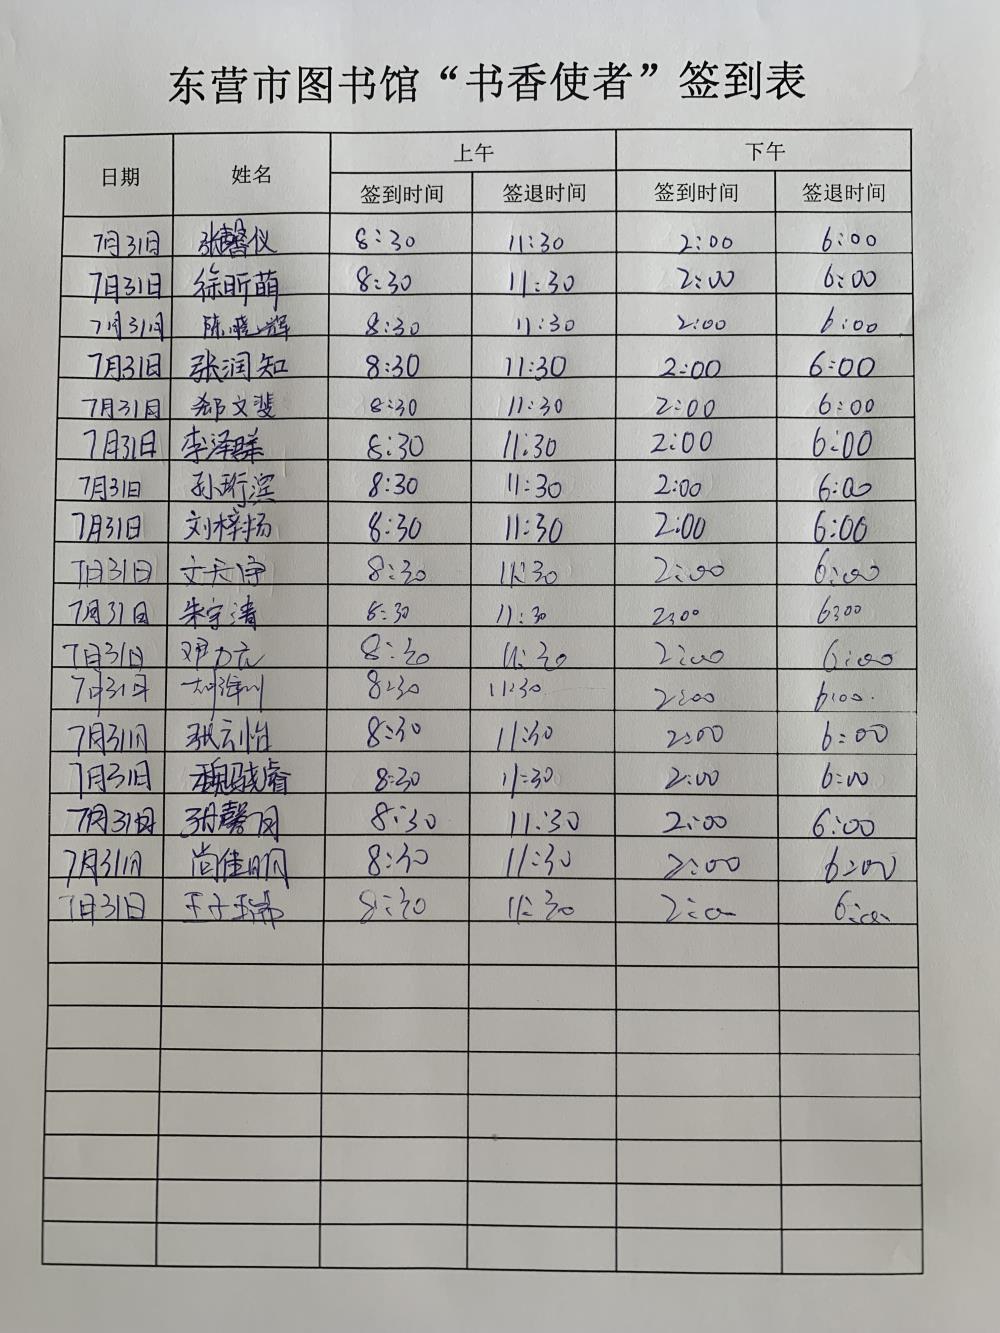 东营市图书馆“书香使者”签到表
日期 姓名 上午 下午
签到时间 签退时间 签到时间 签退时间
7月31日 张馨仪 8:30 11:30 2:00 6:00
7月31日 徐昕萌 8:30 11:30 2:00 6:00
7月31日 陈晓辉 8:30 11:30 2:00 6:00
7月31日 张润知 8:30 11:30 2:00 6:00
7月31日 郑文斐 8:30 11:30 2:00 6:00
7月31日 李泽群 8:30 11:30 2:00 6:00
7月31日 孙珩滨 8:30 11:30 2:00 6:00
7月31日 刘梓扬 8:30 11:30 2:00 6:00
7月31日 8:30 11:30 2:00 6:00
7月31日 朱宇涛 8:30 11:30 2:00 6:00
7月31日 8:30 11:30 2:00 6:00
7月31日 8:30 11:30 2:00 6:00
7月31日 张云怡 8:30 11:30 2:00 6:00
7月31日 魏骁睿 8:30 11:30 2:00 6:00
7月31日 张馨月 8:30 11:30 2:00 6:00
7月31日 尚佳明 8:30 11:30 2:00 6:00
7月31日 王子瑞 8:30 11:30 2:00 6:00